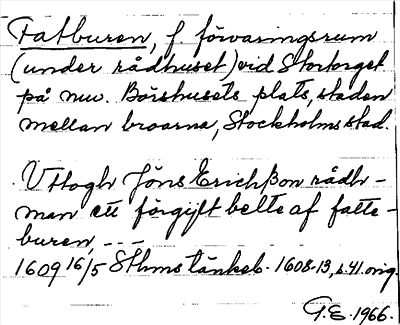 Fatburen, f förvaringsrum
(under rådhuset) vid Stortorget
på nuv. Börshusets plats, staden
mellan broarna, Stockholms stad.
Vttogh Jöns Erichßon rådh-
man ett förgijft belte af fatte-
buren, - - -
1609 16/5 Sthms tänkeb. 1608-13, s.41 orig.
G.E. 1966.